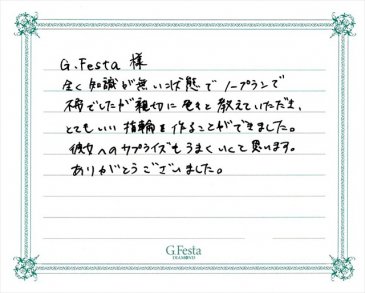 G.Festa 様
全く知識が無い状態でノープランで
不安でしたが親切に色々と教えていただき、
とてもいい指輪を作ることができました。
彼女へのサプライズもうまくいくと思います。
ありがとうございました。
G.Festa
DIAMOND